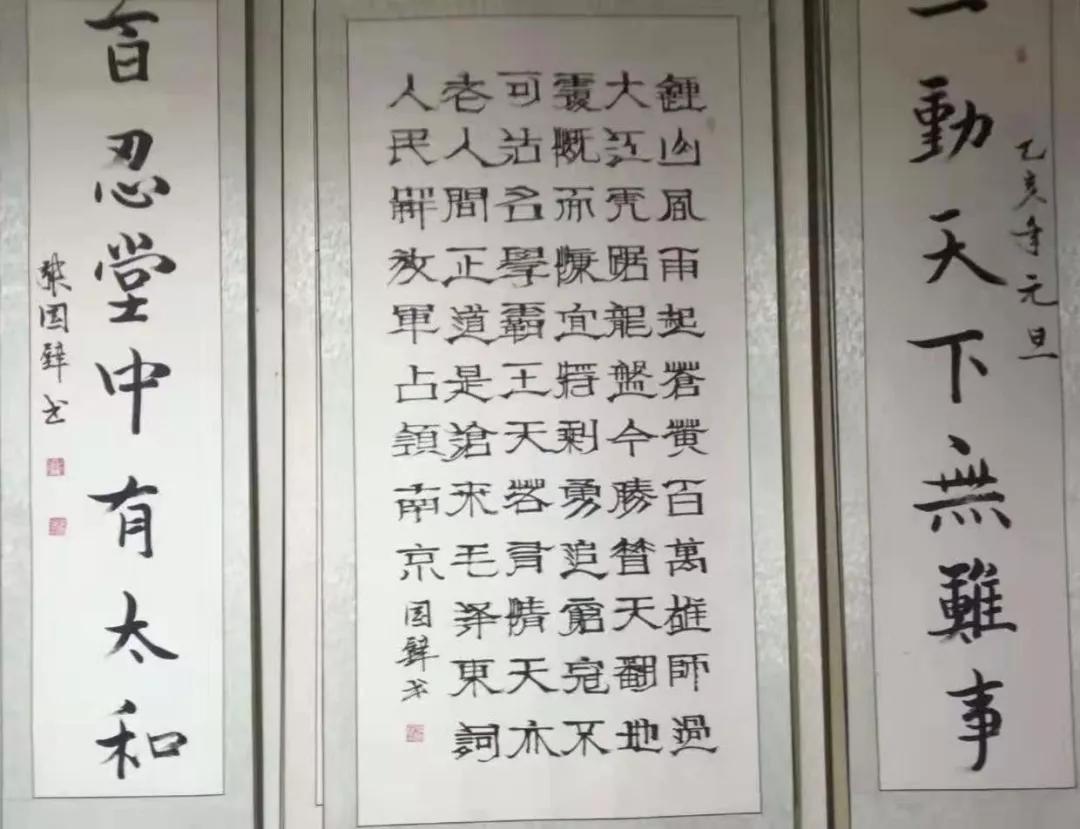 一動天下無難事
乙亥年元旦
鍾山風雨起蒼黄百萬雄師過
大江虎踞龍盤今勝昔天翻地
覆慨而慷宜將剩勇追窮寇不
可沽名學霸王天若有情天亦
老人間正道是滄桑毛澤東詞
人民解放軍占領南京
國璧书
百忍堂中有太和
張國璧书